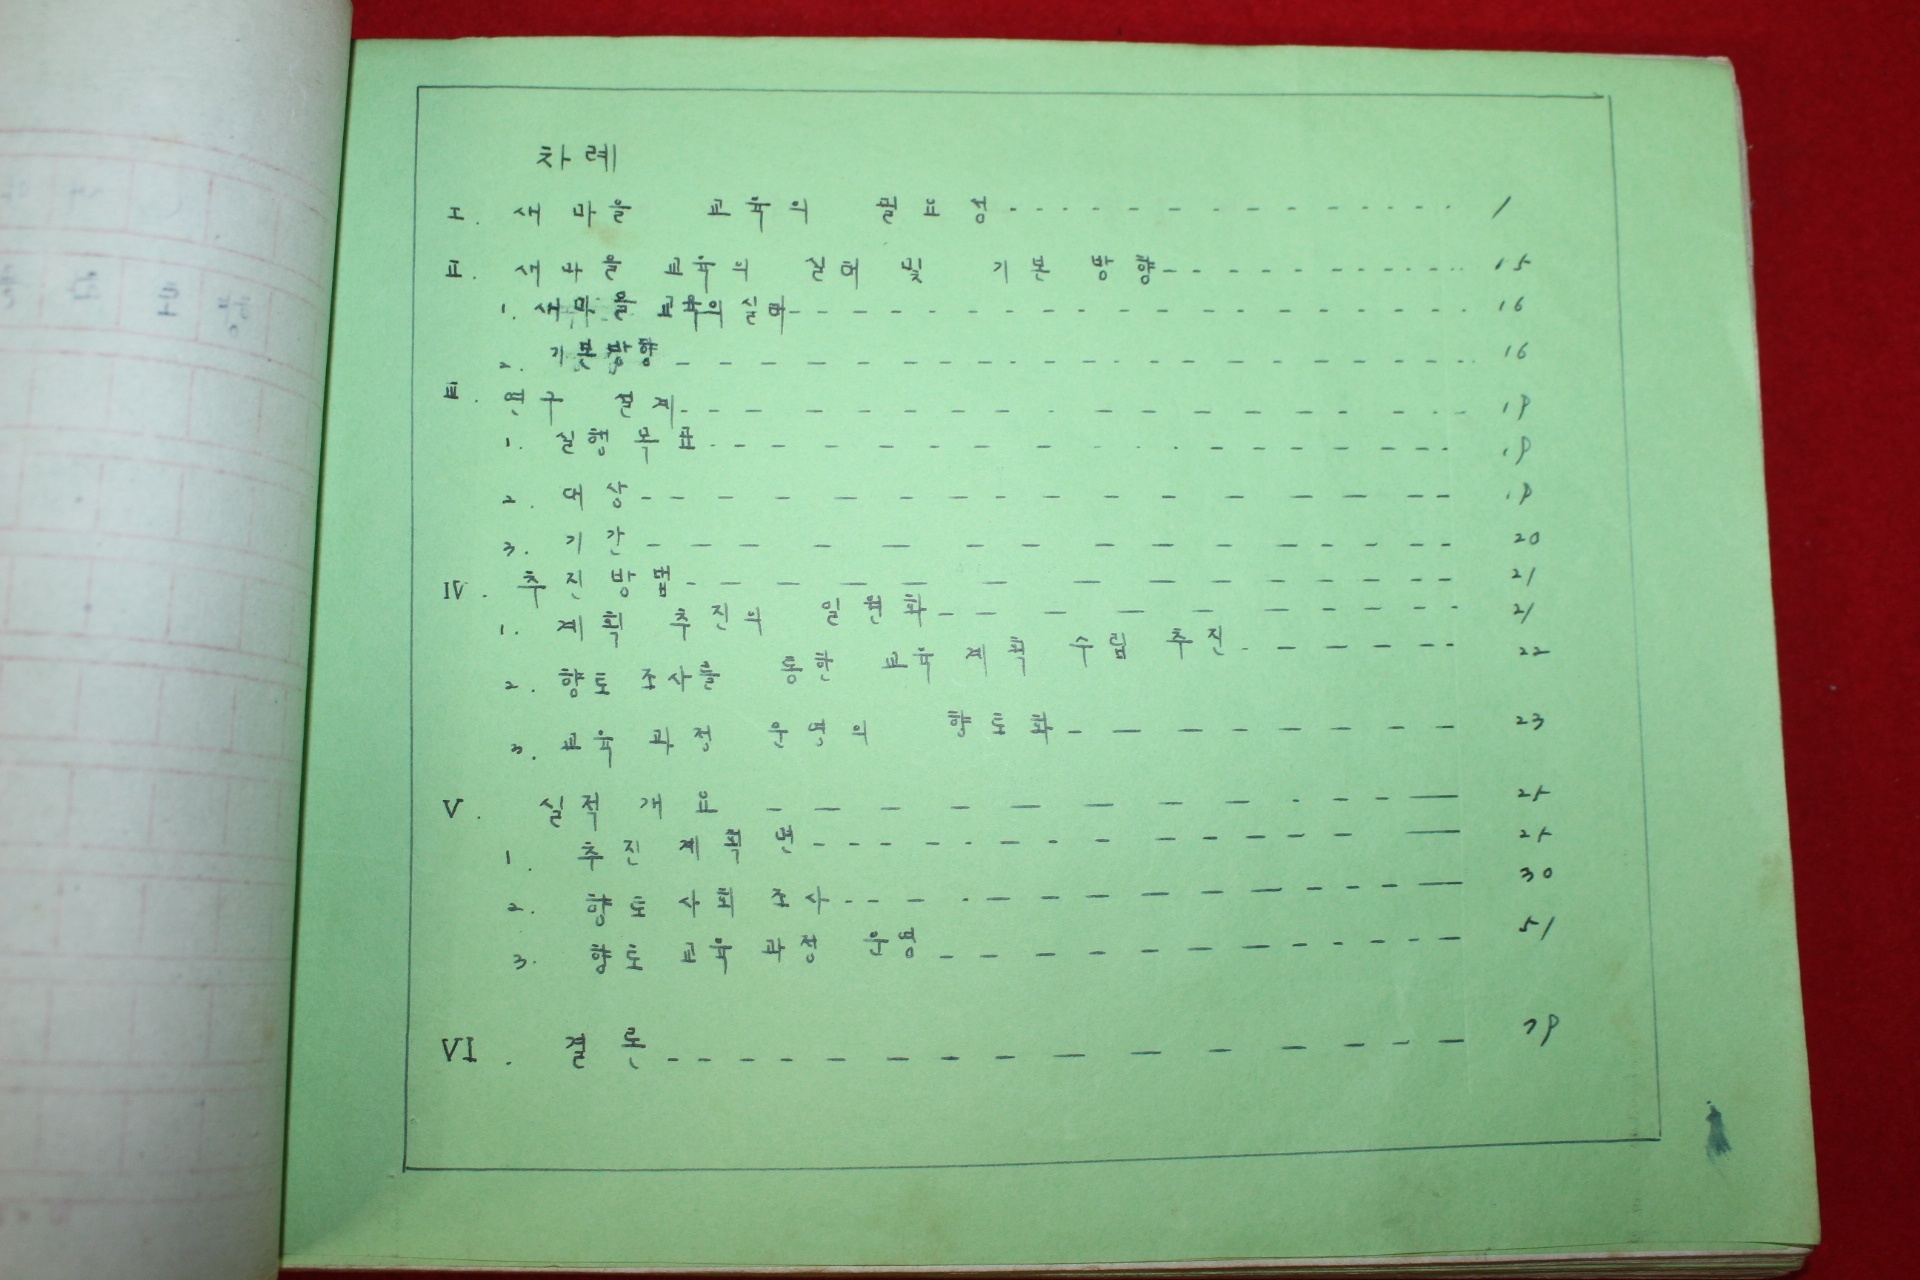 차례
I. 새마을 교육의 필요성 1
II. 새마을 교육의 실태 및 기본 방향 15
1. 새마을 교육의 실태 16
2. 기본방향 16
III. 연구 설계 19
1. 실행 목표 19
2. 대상 19
3. 기간 20
IV. 추진 방법 21
1. 계획 추진의 일원화 21
2. 향토 조사를 통한 교육 계획 수립 추진 22
3. 교육 과정 운영의 향토화 23
V. 실적 개요 25
1. 추진 계획 면 25
2. 향토 사회 조사 30
3. 향토 교육 과정 운영 51
VI. 결론 79